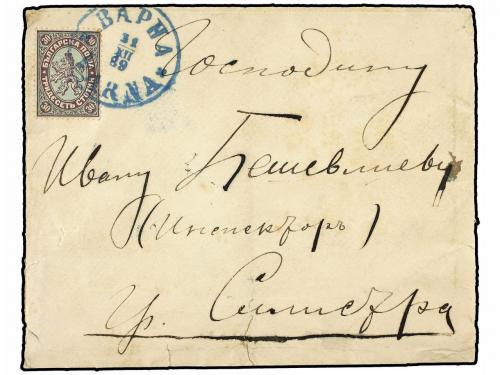 30 30
БЪЛГАРСКА ПОЩА
ТРИДЕСЕТЬ СТОТИН.
30 30
ВАРНА
31
XII
89
VARNA
Господину
Ивану Бешевлиеву
(Инспекторъ)
гр. Силистра